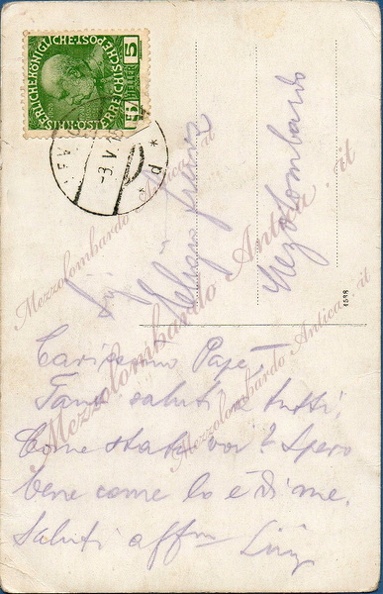 KAISERLICHE KÖNIGLICHE ÖSTERREICHISCHE POST
5 HELLER 5
3.V.
Mezzolombardo
1588
Carissimo Papà
Tanti saluti a tutti.
Come state voi? Spero
bene come lo è di me.
Saluti affm
Mezzolombardo Antica.it
Mezzolombardo Antica.it
Mezzolombardo Antica.it